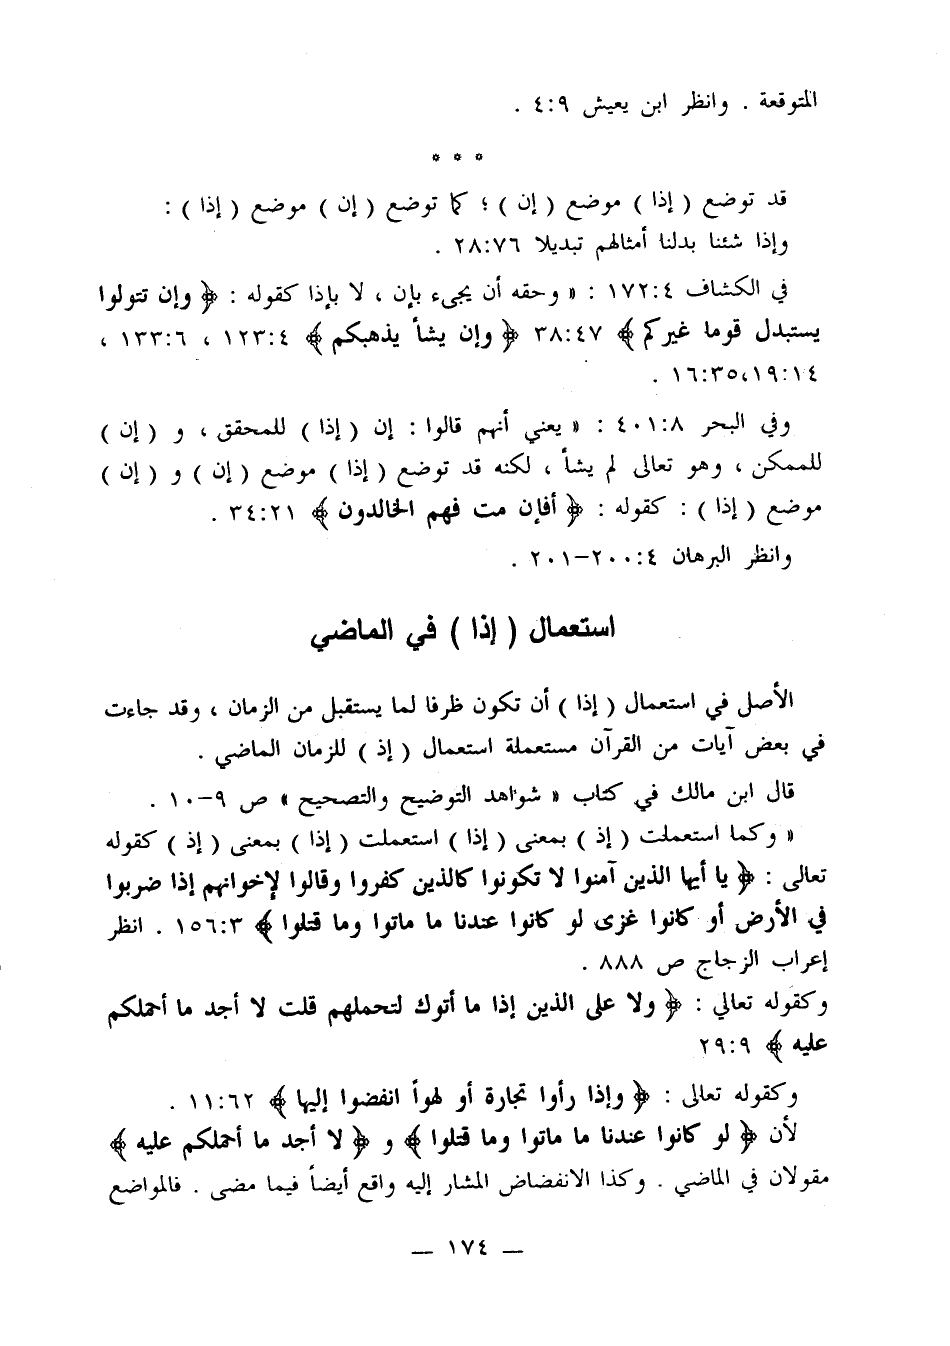 المتوقعة . وانظر ابن يعيش ٤:٩ .
* * *
قد توضع ( إذا ) موضع ( إن ) ؛ كما توضع ( إن ) موضع ( إذا ) :
وإذا شئنا بدلنا أمثالهم تبديلا ٢٨:٧٦ .
في الكشاف ١٧٢:٤ : « وحقه أن يجيء بإن ، لا بإذا كقوله : ﴿ وإن تتولوا
يستبدل قوما غيركم ﴾ ٣٨:٤٧ ﴿ وإن يشأ يذهبكم ﴾ ١٢٣:٤ ، ١٣٣:٦ ،
١٦:٣٥،١٩:١٤ .
وفي البحر ٤٠١:٨ : « يعني أنهم قالوا : إن ( إذا ) للمحقق ، و ( إن )
للممكن ، وهو تعالى لم يشأ ، لكنه قد توضع ( إذا ) موضع ( إن ) و ( إن )
موضع ( إذا ) : كقوله : ﴿ أفإن مت فهم الخالدون ﴾ ٣٤:٢١ .
وانظر البرهان ٢٠٠:٤–٢٠١ .
استعمال ( إذا ) في الماضي
الأصل في استعمال ( إذا ) أن تكون ظرفا لما يستقبل من الزمان ، وقد جاءت
في بعض آيات من القرآن مستعملة استعمال ( إذ ) للزمان الماضي .
قال ابن مالك في كتاب « شواهد التوضيح والتصحيح » ص ٩–١٠ .
« وكما استعملت ( إذ ) بمعنى ( إذا ) استعملت ( إذا ) بمعنى ( إذ ) كقوله
تعالى : ﴿ يا أيها الذين آمنوا لا تكونوا كالذين كفروا وقالوا لإخوانهم إذا ضربوا
في الأرض أو كانوا غزى لو كانوا عندنا ما ماتوا وما قتلوا ﴾ ١٥٦:٣ . انظر
إعراب الزجاج ص ٨٨٨ .
وكقوله تعالي : ﴿ ولا على الذين إذا ما أتوك لتحملهم قلت لا أجد ما أحملكم
عليه ﴾ ٢٩:٩
وكقوله تعالى : ﴿ وإذا رأوا تجارة أو لهواً انفضوا إليها ﴾ ١١:٦٢ .
لأن ﴿ لو كانوا عندنا ما ماتوا وما قتلوا ﴾ و ﴿ لا أجد ما أحملكم عليه ﴾
مقولان في الماضي . وكذا الانفضاض المشار إليه واقع أيضاً فيما مضى . فالمواضع
— ١٧٤ —